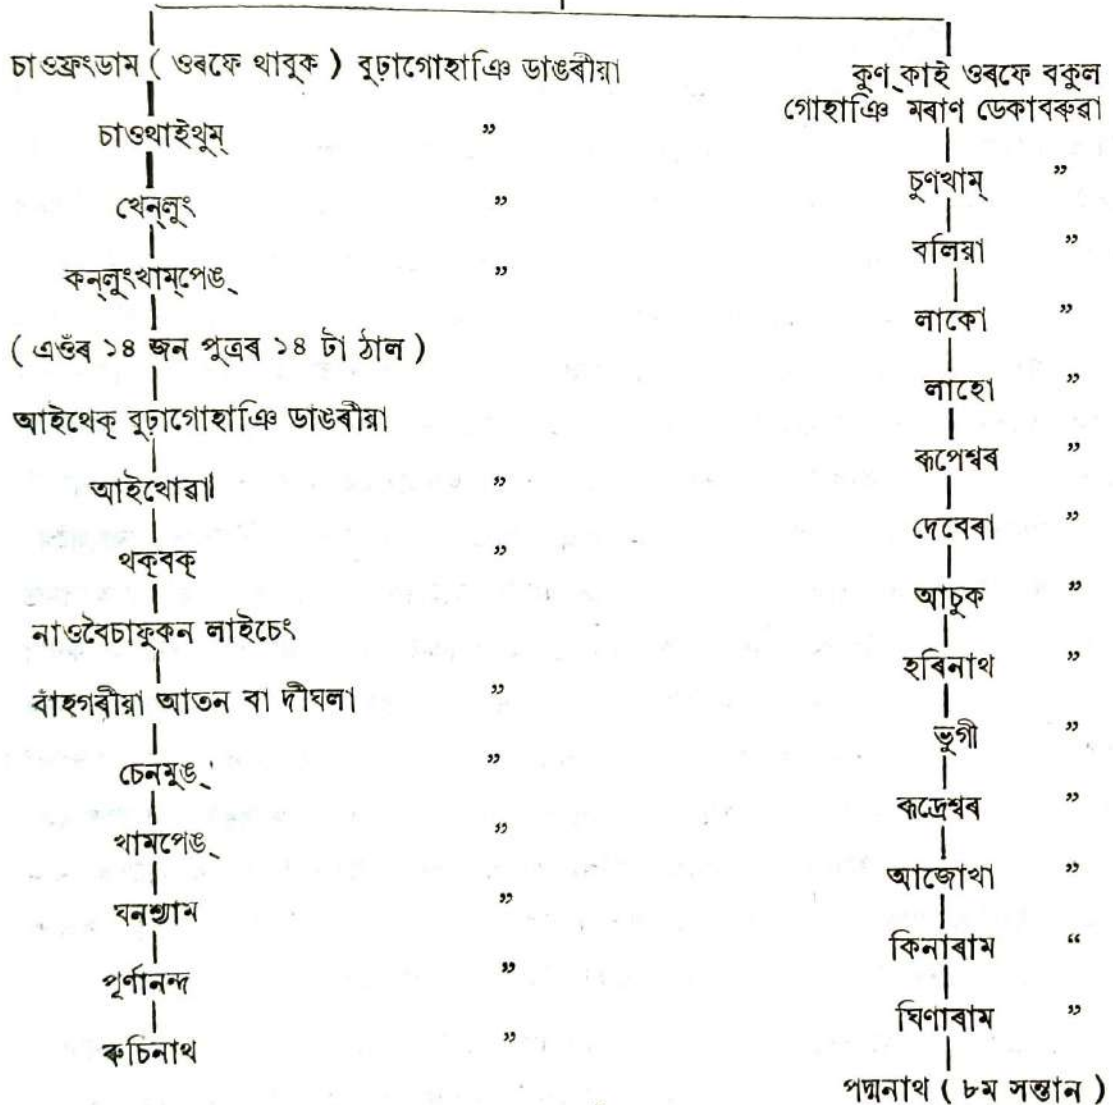 চাওফ্রংডাম ( ওৰফে থাবুক ) বুঢ়াগোহাঞি ডাঙৰীয়া
চাওথাইথুম্ ”
খেন্‌লুং ”
কন্‌লুংখাম্‌পেঙ্ ”
( এওঁৰ ১৪ জন পুত্ৰৰ ১৪ টা ঠাল )
আইথেক্ বুঢ়াগোহাঞি ডাঙৰীয়া
আইথোৱা ”
থক্‌বক্ ”
নাওবৈচাফুকন লাইচেং
বাঁহগৰীয়া আতন বা দীঘলা ”
চেনমুঙ্ ”
খামপেঙ্ ”
ঘনশ্যাম ”
পূৰ্ণানন্দ ”
ৰুচিনাথ ”
কুণ্‌কাই ওৰফে বকুল
গোহাঞি মৰাণ ডেকাবৰুৱা
চুণখাম্ ”
বলিয়া ”
লাকো ”
লাহো ”
ৰূপেশ্বৰ ”
দেবেৰা ”
আচুক ”
হৰিনাথ ”
ভুগী ”
ৰূদ্ৰেশ্বৰ ”
আজোখা ”
কিনাৰাম “
ঘিণাৰাম ”
পদ্মনাথ ( ৮ম সন্তান )